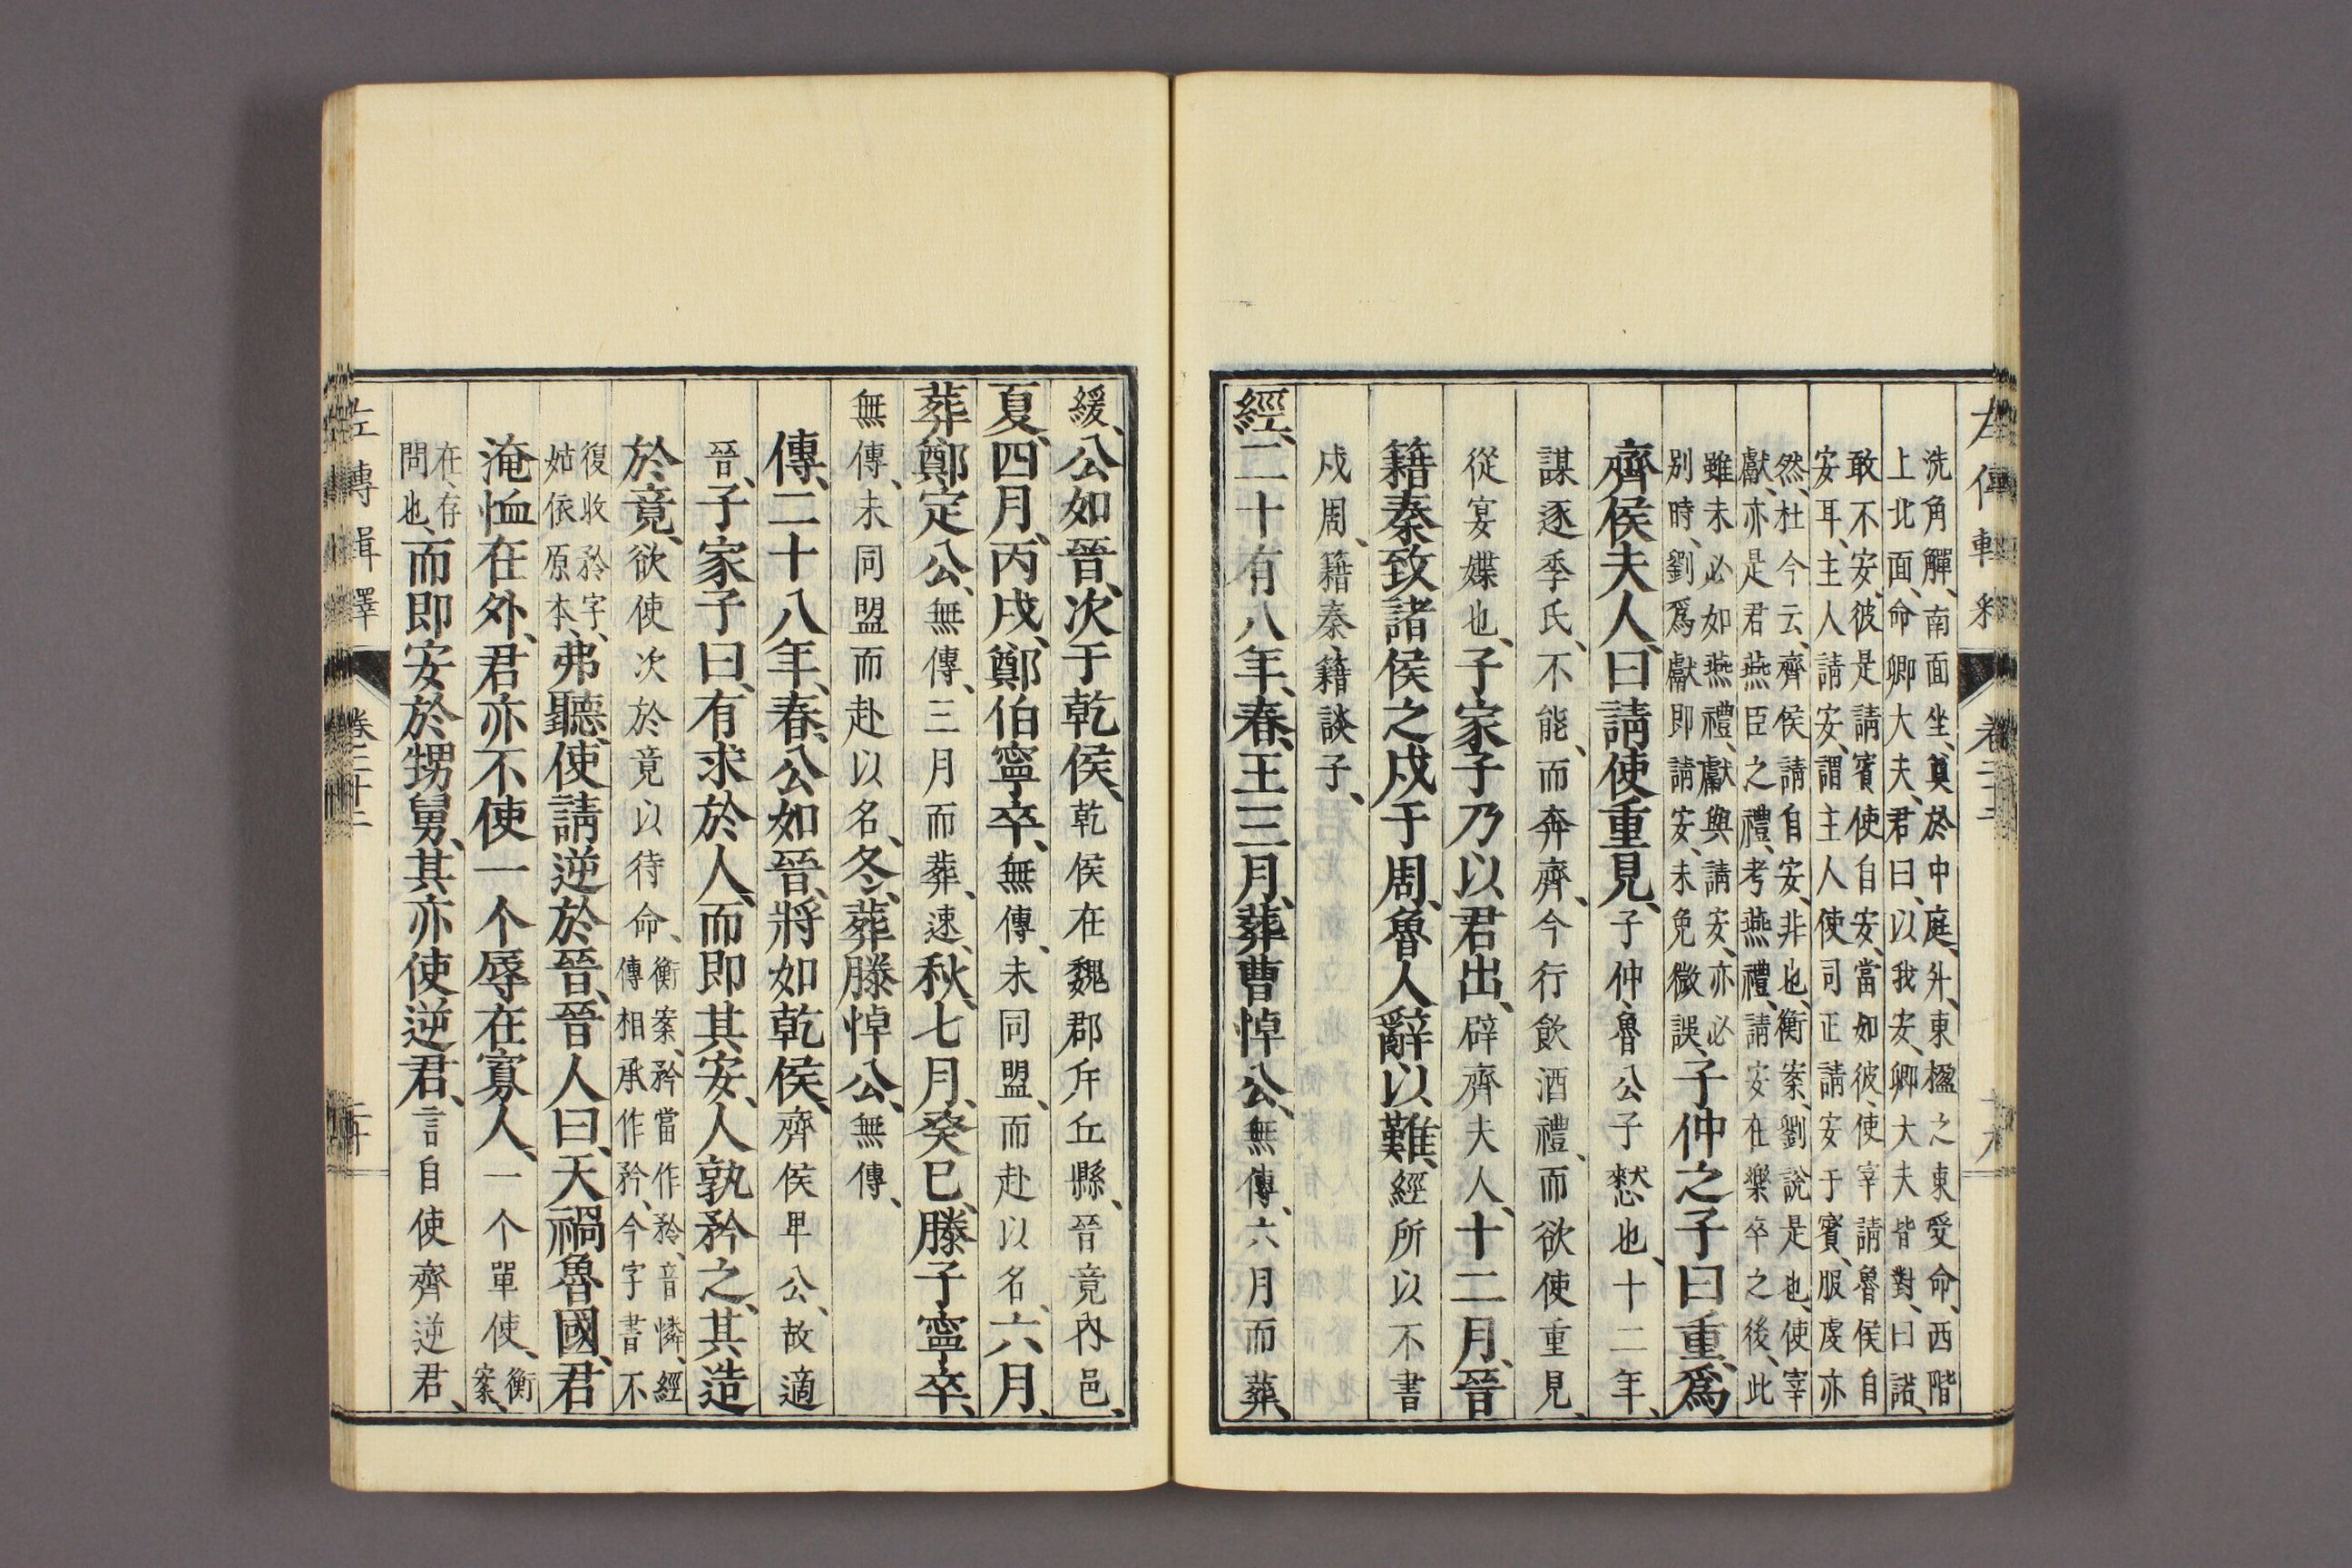 洗角觶、南面坐、奠於中庭、升、東楹之東受命、西階
上北面、命卿大夫、君曰、以我安、卿大夫皆對、曰諾、
敢不安、彼是請賓使自安、當如彼、使宰請魯侯自
安耳、主人請安、謂主人使司正請安于賓、服虔亦
然、杜今云、齊侯請自安、非也、衡案、劉說是也、使宰
獻、亦是君燕臣之禮、考燕禮、請安在樂卒之後、此
雖未必如燕禮、獻與請安、亦必
別時、劉爲獻即請安、未免微誤、子仲之子曰重、爲
齊侯夫人、曰請使重見、子仲、魯公子憖也、十二年、
謀逐季氏、不能、而奔齊、今行飲酒禮、而欲使重見、
從宴媟也、子家子乃以君出、辟齊夫人、十二月、晉
籍秦致諸侯之戍于周、魯人辭以難、經所以不書
戍周、籍秦、籍談子、
經、二十有八年、春、王三月、葬曹悼公、無傳、六月而葬、
緩、公如晉、次于乾侯、乾侯在魏郡斥丘縣、晉竟內邑、
夏、四月、丙戌、鄭伯寧卒、無傳、未同盟、而赴以名、六月、
葬鄭定公、無傳、三月而葬、速、秋、七月、癸巳、滕子寧卒、
無傳、未同盟而赴以名、冬、葬滕悼公、無傳、
傳、二十八年、春、公如晉、將如乾侯、齊侯卑公、故適
晉、子家子曰、有求於人、而即其安、人孰矜之、其造
於竟、欲使次於竟以待命、衡案、矜當作矝、音憐、經
傳相承作矜、今字書不
復收矝字、
姑依原本、弗聽、使請逆於晉、晉人曰、天禍魯國、君
淹恤在外、君亦不使一个辱在寡人、一个單使、衡
案、
在、存
問也、而即安於甥舅、其亦使逆君、言自使齊逆君、
左傳輯釋
卷二十二
二十